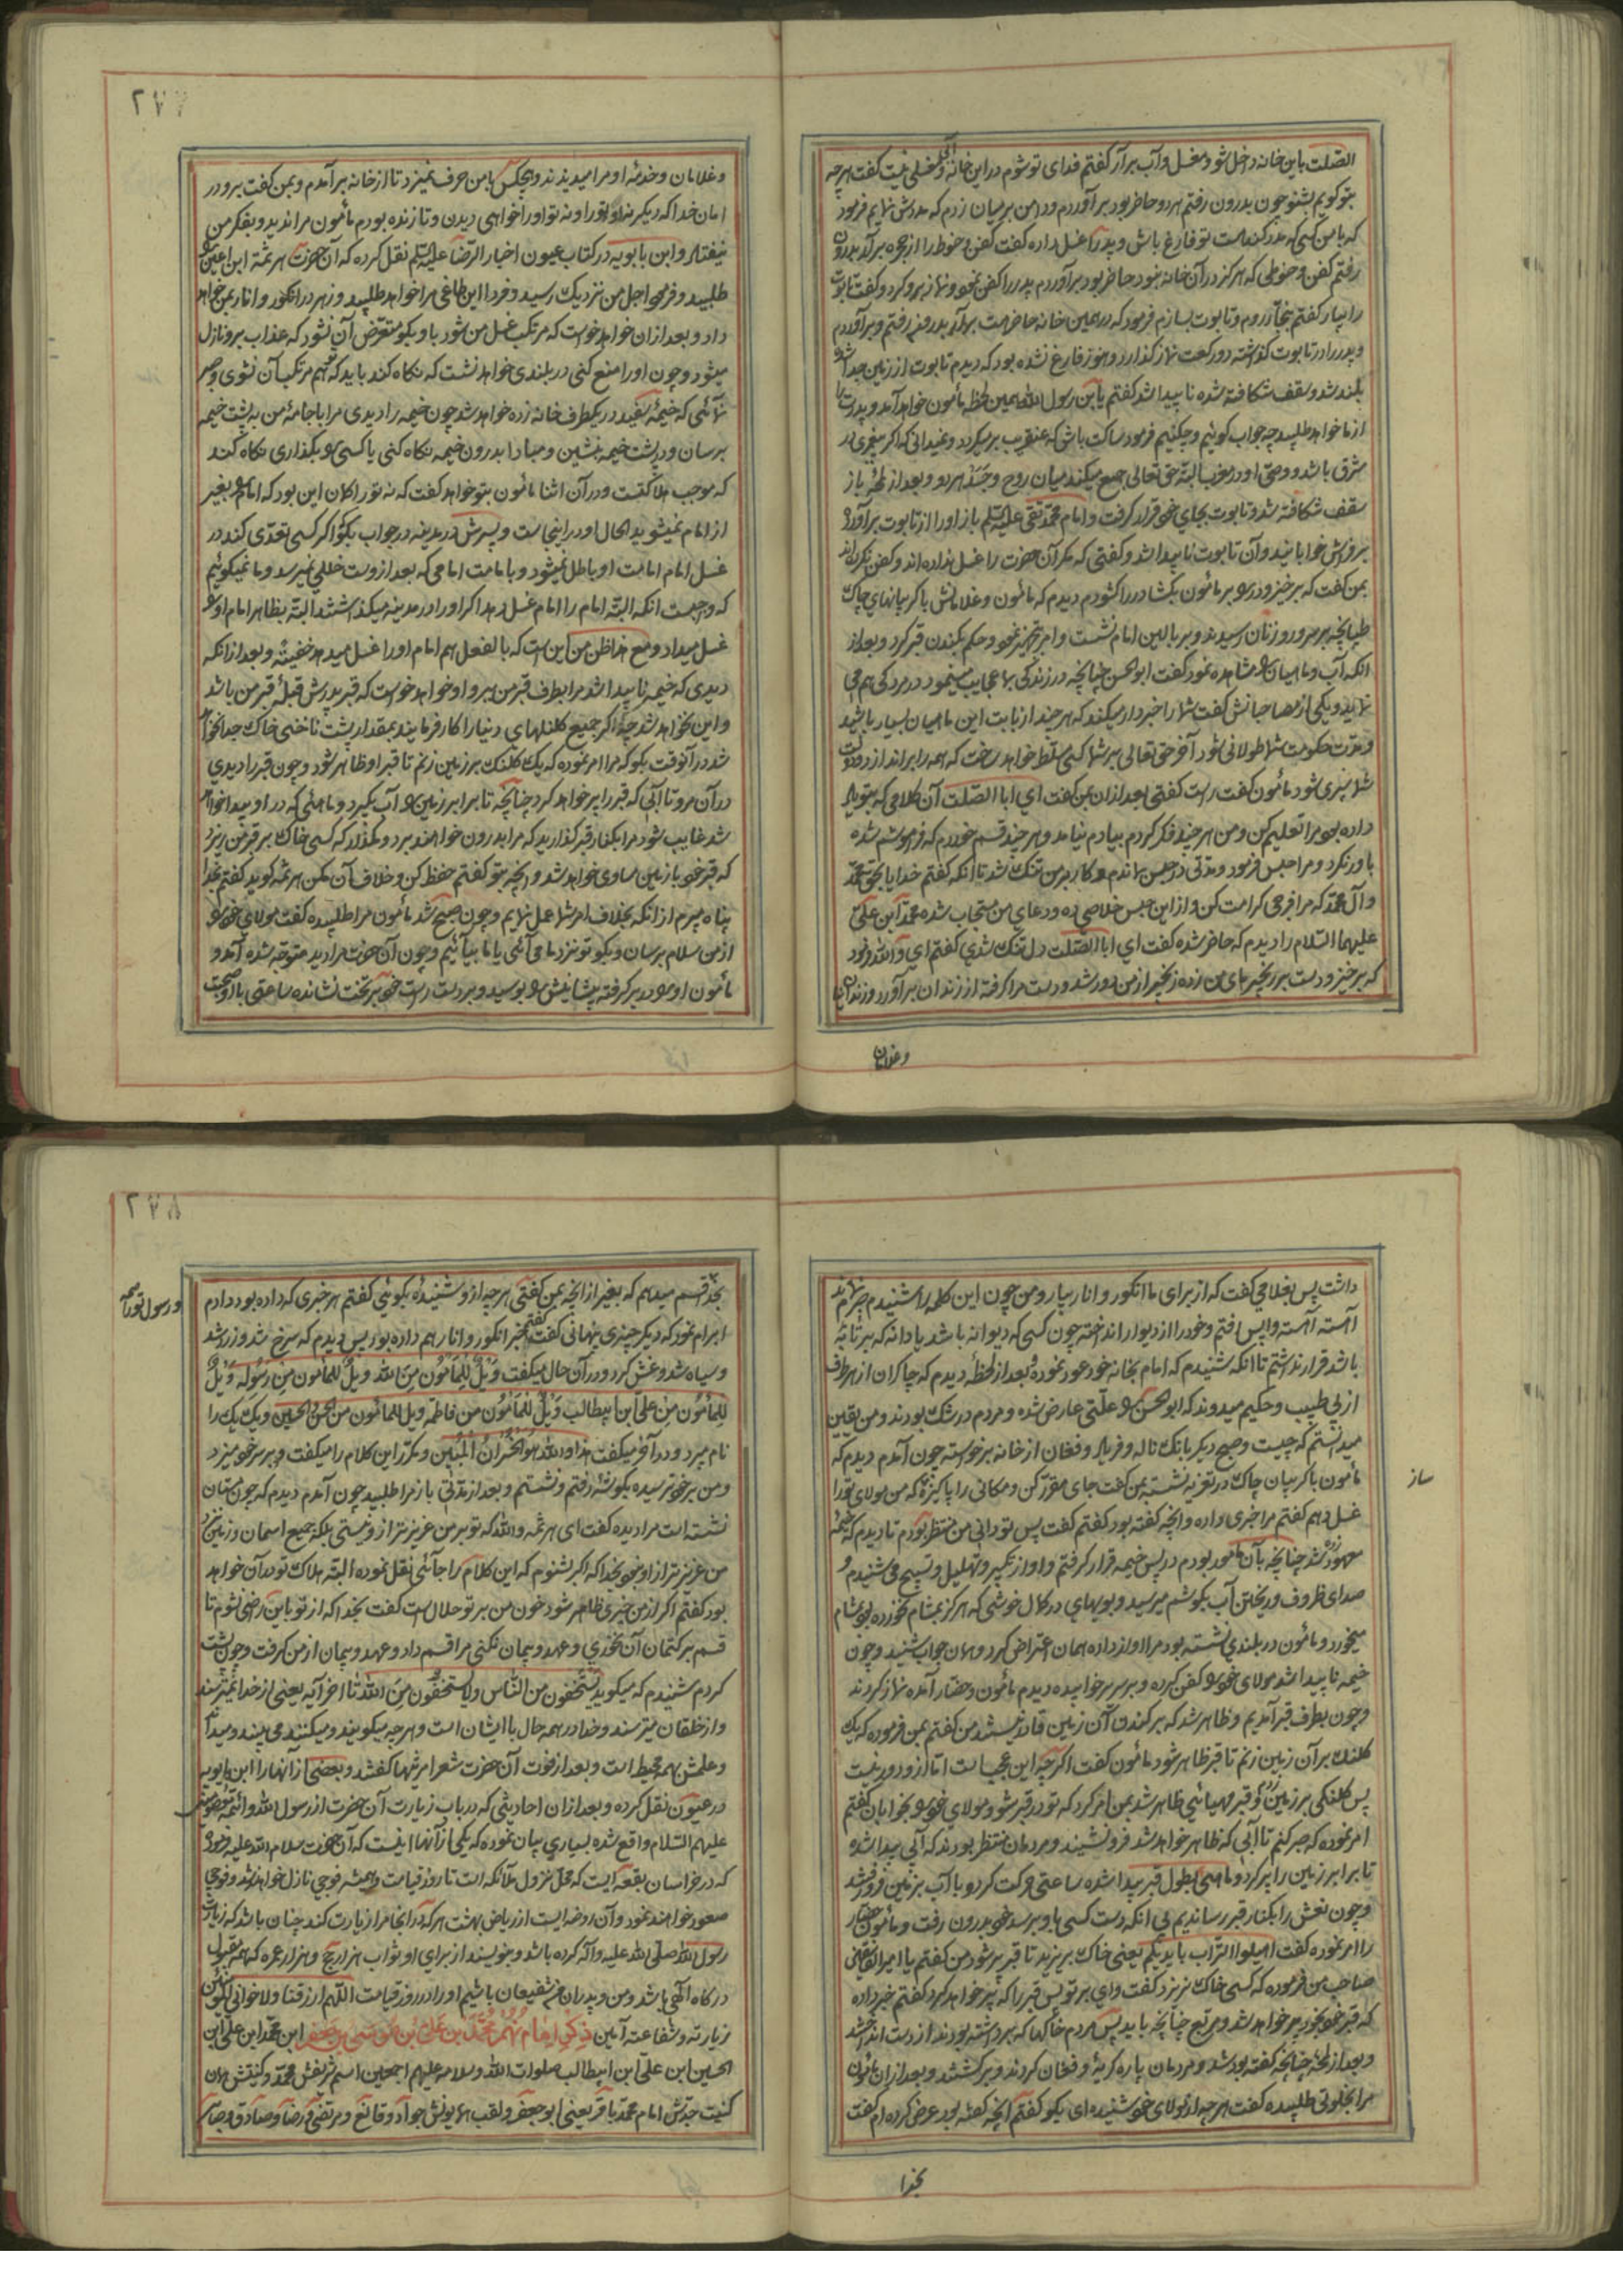 الصّلت باین خانه داخل شو و مغسل و آب برآر گفتم فدای تو شوم در این خانه آب و مغسلی نیست گفت هر چه
بتو گویم بشنو چون بدرون رفتم هر دو حاضر بود برآوردم و دامن بر میان زدم که مددش نمایم فرمود
که با من کسی که مدد کند هست تو فارغ باش و پدر را غسل داده گفت کفن و حنوط را از حجره برآر بدرون
رفتم کفن و حنوطی که هرگز در آن خانه نبود حاضر بود برآوردم پدر را کفن نمود و نماز برو کرد و گفت تابوت
را بیار گفتم بنجّار روم و تابوت بسازم فرمود که در همین خانه حاضر است بدرون رفتم و برآوردم
و پدر را در تابوت گذاشته دو رکعت نماز گذارد و هنوز فارغ نشده بود که دیدم تابوت از زمین جدا شد
بلند شد و سقف شکافته شده ناپیدا شد گفتم یا بن رسول الله همین لحظه مأمون خواهد آمد و پدرت را
از ما خواهد طلبید چه جواب گوئیم و چکنیم فرمود ساکت باش که عنقریب برمیگردد و نمیدانی که اگر پیغمبری در
شرق باشد و وصی او در مغرب البته حق تعالی جمع میکند میان روح و جسد هر دو و بعد از لحظه باز
سقف شکافته شد و تابوت بجای خود قرار گرفت و امام محمد تقی علیه السلم باز او را از تابوت برآورد
بر فراش خوابانید و آن تابوت ناپیدا شد و گفتی که مگر آن حضرت را غسل نداده اند و کفن نکرده اند
بمن گفت که برخیز و در بر مأمون بگشا در را گشودم دیدم که مأمون و غلامانش با گریبانهای چاک
طپانچه بر سر و رو زنان رسیدند و بر بالین امام نشست و امر تجهیز نمود و حکم بکندن قبر کرد و بعد از
انکه آب و ماهیان مشاهده نمود گفت ابوالحسن چنانچه در زندگی بما عجایب مینمود در مردگی هم می
نماید و یکی از مصاحبانش گفت شما را خبردار میکند که هر چند از بابت این ماهیان بسیار باشید
و مدّت حکومت شما طولانی شود آخر حق تعالی بر شما کسی مسلّط خواهد ساخت که همه را براندازد و دولت
شما سپری شود مأمون گفت راست گفتی بعد از آن بمن گفت ای ابا الصّلت آن کلامی که بتو یاد
داده بود مرا تعلیم کن و من هر چند فکر کردم بیادم نیامد و هر چند قسم خوردم که فراموشم شده
باور نکرد و مرا حبس فرمود و مدتی در حبس بماندم و کار بر من تنگ شد تا انکه گفتم خدایا بحق محمّد
و آل محمّد که مرا فرجی کرامت کن و از این حبس خلاصی ده و دعای من مستجاب شده محمّد ابن علیّ
علیهما السّلام را دیدم که حاضر شده گفت ای ابا الصّلت دل تنگ شدی گفتم ای والله فرمود
که برخیز و دست بر زنجیر پای من زده زنجیر از من دور شد و دست مرا گرفته از زندان برآورد و زندانبان
و غلامان
۲۷۷
و غلامان و خدمه او مرا میدیدند و هیچکس با من حرف نمیزد تا از خانه برآمدم و بمن گفت برو در
امان خدا که دیگر نه او تو را و نه تو او را خواهی دیدن و تا زنده بودم مأمون مرا ندید و بفکر من
نیفتاد و ابن بابویه در کتاب عیون اخبار الرّضا علیه السلم نقل کرده که آن حضرت هرثمة ابن اعین
طلبید و فرمود اجل من نزدیک رسید و فردا این طاغی مرا خواهد طلبید و زهر در انگور و انار بمن خواهد
داد و بعد از ان خواهد خواست که مرتکب غسل من شود باو بگو متعرّض آن نشود که عذاب برو نازل
میشود و چون او را منع کنی در بلندی خواهد نشست که نگاه کند باید که تو هم مرتکب آن نشوی و صبر
نمائی که خیمهٔ سفید در یکطرف خانه زده خواهد شد چون خیمه را دیدی مرا با جامهٔ من به پشت خیمه
برسان و در پشت خیمه بنشین و مبادا بدرون خیمه نگاه کنی یا کسی بگذاری نگاه کند
که موجب هلاکتست و در آن اثنا مأمون بتو خواهد گفت که نه تو را گمان این بود که امام بغیر
از امام نمیشوید الحال او در اینجاست و پسرش در مدینه در جواب بگو اگر کسی تعدّی کند در
غسل امام امامت او باطل نمیشود و بامامت امامی که بعد از وست خللی نمیرسد و ما نمیگوئیم
که واجبست انکه البتّه امام را امام غسل دهد اگر او را در مدینه میگذاشتند البتّه بظاهر امام او
غسل میداد و مع هذا ظن من این است که بالفعل هم امام او را غسل میدهد خفیتةً و بعد از انکه
دیدی که خیمه ناپیدا شد مرا بطرف قبر من ببر و او خواهد خواست که قبر پدرش قبلهٔ قبر من باشد
و این نخواهد شد چه اگر جمیع کلنگهای دنیا را کار فرمایند بمقدار پشت ناخنی خاک جدا نخواهد
شد در آنوقت بگو که مرا امر نموده که یک کلنگ بر زمین زنم تا قبر او ظاهر شود و چون قبر را دیدی
در آن مرو تا آبی که قبر را پر خواهد کرد چنانچه تا برابر زمین آب بگیرد و ماهئی که در او پیدا خواهد
شد غایب شود مرا بکنار قبر گذارید که مرا بدرون خواهند برد و مگذار که کسی خاک بر قبر من ریزد
که قبر خود با زمین مساوی خواهد شد و انچه بتو گفتم حفظ کن و خلاف آن مکن هرثمه گوید گفتم بخدا
پناه میبرم از انکه بخلاف امر شما عمل نمایم و چون صبح شد مأمون مرا طلبیده گفت مولای خود
از من سلام برسان و بگو تو نزد ما می آئی یا ما بیائیم و چون آن حضرت مرا دید متوجّه شده آمد و
مأمون او در بر گرفته پیشانیش بوسید و بر دست راست خود بر تخت نشانده ساعتی با او صحبت
داشت پس بغلامی گفت که از برای ما انگور و انار بیار و من چون این کلمه را شنیدم
آهسته آهسته واپس رفتم و خود را از دیوار انداخته چون کسی که دیوانه باشد یا دانه که بر تابه
باشد قرار نداشتم تا انکه شنیدم که امام بخانه خود عود نموده و بعد از لحظهٔ دیدم که چاکران از هر طرف
از پی طبیب و حکیم میدوند که ابوالحسن علّتی عارض شده و مردم در شک بودند و من بیقین
میدانستم که چیست و صبح دیگر بانگ ناله و فریاد و فغان از خانه برخواسته چون آمدم دیدم که
مأمون با گریبان چاک در تعزیه نشسته بمن گفت جای مقرّر کن و مکانی را پاکیزه که من مولای تو را
ساز
غسل دهم گفتم مرا خبری داده و انچه گفته بود گفتم گفت پس تو دانی من منتظر بودم تا دیدم که خیمهٔ
معهود زده شد چنانچه بآن مأمور بودم در پس خیمه قرار گرفتم و اواز تکبیر و تهلیل و تسبیح می شنیدم و
صدای ظروف و ریختن آب بگوشم میرسید و بویهای در کمال خوشی که هرگز بمشام نخورده بود بمشام
میخورد و مأمون در بلندی نشسته بود مرا اواز داده همان اعتراض کرد و همان جواب شنید و چون
خیمه ناپیدا شد مولای خود کفن کرده و بر سریر خوابیده دیدم مأمون و حضّار آمده نماز کردند
و چون بطرف قبر آمدیم و ظاهر شد که بر کندن آن زمین قادر نیستند من گفتم بمن فرموده که یک
کلنگ بر آن زمین زنم تا قبر ظاهر شود مأمون گفت اگر چه این عجب است امّا از و دور نیست
پس کلنگی بر زمین زدم و قبر مهیائی ظاهر شد بمن امر کرد که تو در قبر شو و مولای خود بخوابان گفتم
امر نموده که صبر کنم تا آبی که ظاهر خواهد شد فرو نشیند و مردمان منتظر بودند که آبی پیدا شده
تا برابر زمین را پر کرد و ماهی بطول قبر پیدا شده ساعتی حرکت کرد و با آب بزمین فرو شد
و چون نعش را بکنار قبر رساندیم بی انکه دست کسی باو برسد خود بدرون رفت و مأمون حضّار
را امر نموده گفت اهیلوا التراب بایدیکم یعنی خاک بریزید تا قبر پر شود من گفتم یا امیرالمؤمنین
صاحب من فرموده که کسی خاک نریزد گفت وای بر تو پس قبر را که پر خواهد کرد گفتم خبر داده
که قبر خود بخود پر خواهد شد و مربّع چنانچه باید پس مردم خاکها که برداشته بودند از دست انداختند
و بعد از لحظه چنانچه گفته بود شد و مردمان پاره گریه و فغان کردند و برگشتند و بعد از ان مأمون
مرا بخلوتی طلبیده گفت هر چه از مولای خود شنیده ای بگو گفتم انچه گفته بود عرض کرده ام گفت
بخدا
۲۷۸
بخدا قسم میدهم که بغیر از انچه بمن گفتی هر چه از و شنیدهٔ بگوئی گفتم هر خبری که داده بود دادم
و رسول تو را
ابرام نمود که دیگر چیزی پنهانی گفت گفتم خبر انگور و انار هم داده بود پس دیدم که سرخ شد و زرد شد
و سیاه شد و غش کرد و در آن حال میگفت وَیلٌ لِلمَأمُون مِنَ الله ویلٌ للمأمون مِن رَسُولِه وَیلٌ
لِلمَأمُون مِن علیّ ابن ابیطالب وَیلٌ للمَأمُون من فاطمه ویل للمأمون من الحسن و الحسین و یک یک را
نام میبرد و در آخر میگفت هذا والله هو الخُسرانُ المُبین و مکرّر این کلام را میگفت و بر سر خود میزد
و من بر خود ترسیده بگوشهٔ رفتم و نشستم و بعد از مدّتی باز مرا طلبید چون آمدم دیدم که چون مستان
نشسته است مرا دیده گفت ای هرثمه والله که تو بر من عزیزتر از و نیستی بلکه جمیع اسمان و زمین نزد
من عزیزتر از او نبود بخدا که اگر بشنوم که این کلام را جائی نقل نموده البته هلاک تو در آن خواهد
بود گفتم اگر از من خبری ظاهر شود خون من بر تو حلال است گفت بخدا که از تو باین راضی نشوم تا
قسم بر کتمان آن نخوری و عهد و پیمان نکنی مرا قسم داد و عهد و پیمان از من گرفت و چون پشت
کردم شنیدم که میگوید یَستَخفون من النّاس ولا یستخفون مِنَ الله تا اخر آیه یعنی از خدا نمیترسند
و از خلقان میترسند و خدا در همه حال با ایشان است و هر چه میگویند و میکنند می بیند و میداند
و علمش بهمه محیط است و بعد از فوت آن حضرت شعرا مرثیها گفتند و بعضی از آنها را ابن بابویه
در عیون نقل کرده و بعد از ان احادیثی که در باب زیارت آن حضرت از رسول الله و ائمّه معصومین
علیهم السّلام واقع شده بسیاری بیان نموده که یکی از آنها اینست که آن حضرت سلام الله علیه فرمود
که در خراسان بقعه ایست که محلّ نزول ملائکه است تا روز قیامت همیشه فوجی نازل خواهد شد و فوجی
صعود خواهند نمود و آن روضه ایست از ریاض بهشت هر که در انجا مرا زیارت کند چنان باشد که زیارت
رسول الله صلّی الله علیه و آله کرده باشد و بنویسند از برای او ثواب هزار حج و هزار عمره که همه مقبول
درگاه الهی باشد و من و پدران من شفیعان باشیم او را در روز قیامت اللّهم ارزقنا ولاخوانی المؤمنین
زیارته و شفاعته آمین ذِکرِ امام نُهُم مُحَمَّد بنِ عَلیّ بنِ مُوسَی بنِ جَعفَر ابن محمّد ابن علی ابن
الحسین ابن علیّ ابن ابیطالب صلوات الله و سلامه علیهم اجمعین اسم شریفش محمّد و کنیتش همان
کنیت جدّش امام محمّد باقر یعنی ابو جعفر و لقب همایونش جواد و قانع و مرتضی و رضا و صادق و صابر